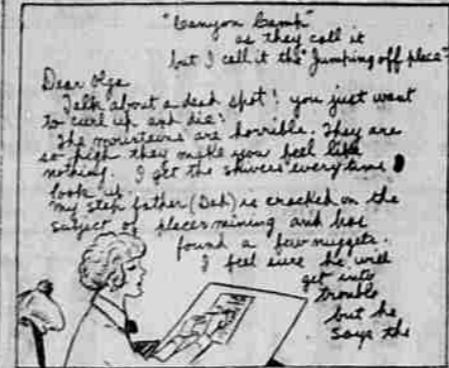 "Canyon Camp"
as they call it
but I call it the "Jumping off place"
Dear Olga
Talk about a dead spot! you just want
to curl up and die!
The mountains are horrible. They are
so high they make you feel like
nothing. I get the shivers everytime I
look up.
My step father (Dad) is cracked on the
subject of placer mining and has
found a few nuggets.
I feel sure he will
get into
trouble
but he
says the